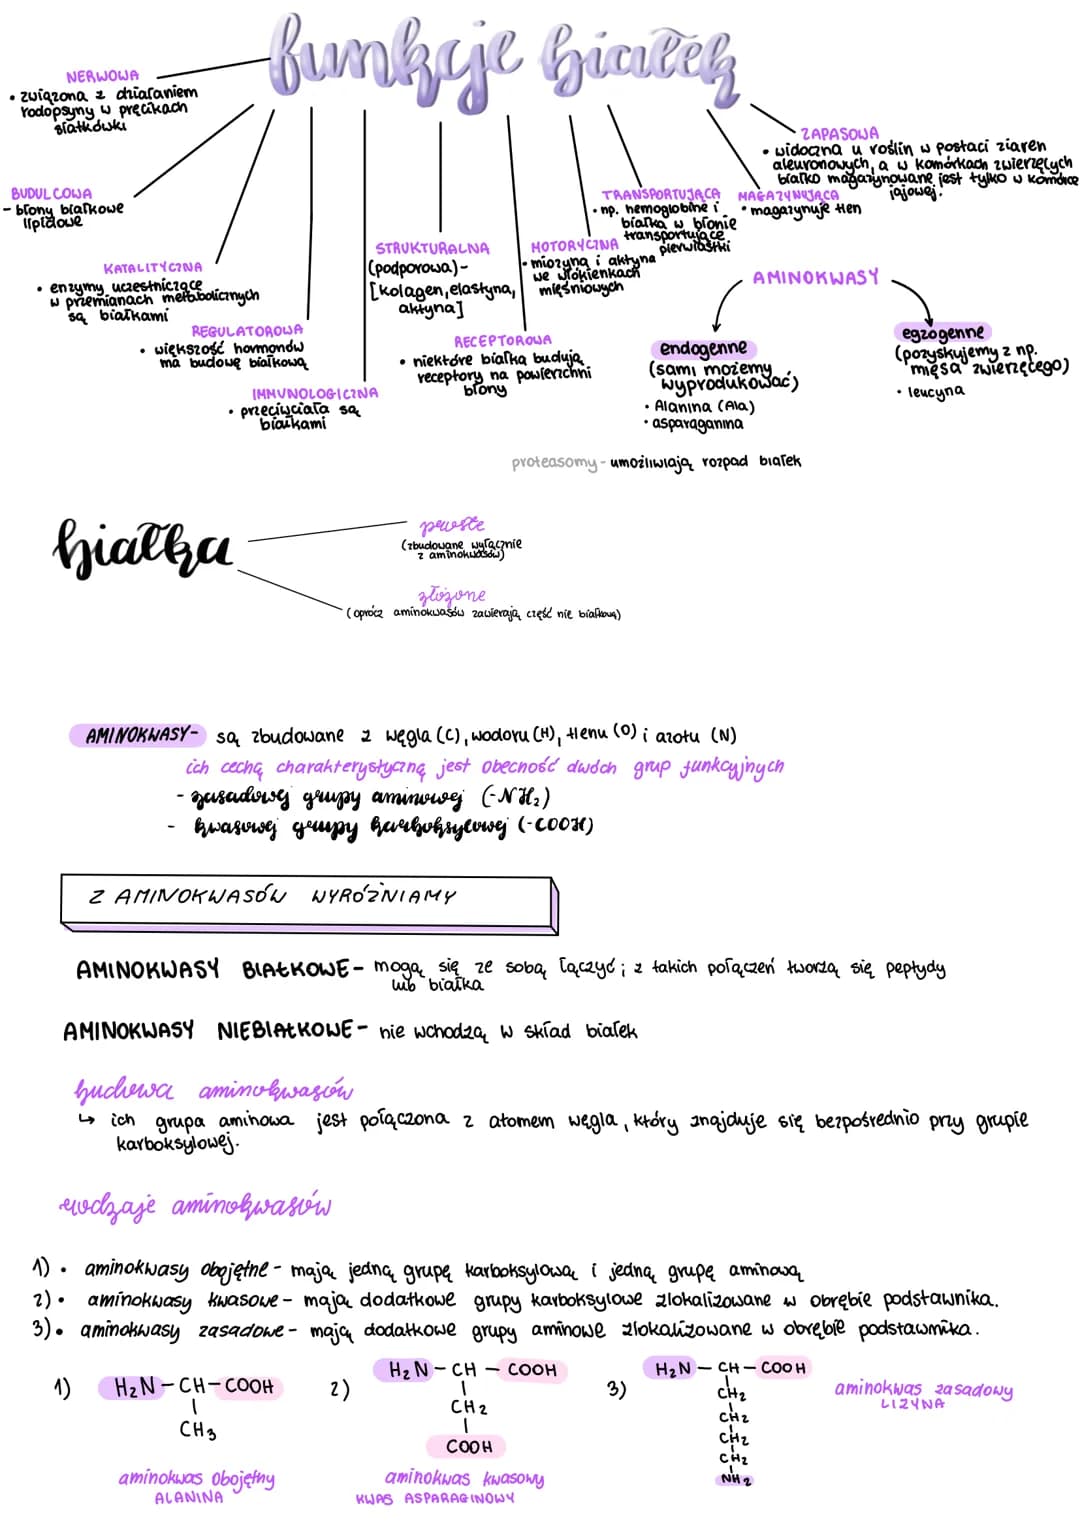 funkcje białek
NERWOWA
• związona z działaniem
rodopsyny w pręcikach
siatkówki
BUDULCOWA
- błony białkowe
lipidowe
KATALITYCZNA
• enzymy uczestniczące
w przemianach metabolicznych
są białkami
REGULATOROWA
• większość hormonów
ma budowę białkową
IMMUNOLOGICZNA
• przeciwciała są
białkami
STRUKTURALNA
(podporowa)-
[kolagen, elastyna,
aktyna]
RECEPTOROWA
• niektóre białka budują
receptory na powierzchni
błony
MOTORYCZNA
• miozyna i aktyna
we włókienkach
mięśniowych
TRANSPORTUJĄCA
• np. hemoglobine i
białka w błonie
transportujące
pierwiastki
MAGAZYNUJĄCA
• magazynuje tlen
ZAPASOWA
• widoczna u roślin w postaci ziaren
aleuronowych, a w komórkach zwierzęcych
białko magazynowane jest tylko w komórce
jajowej.
AMINOKWASY
endogenne
(sami możemy
wyprodukować)
• Alanina (Ala)
• asparaganina
egzogenne
(pozyskujemy z np.
mięsa zwierzęcego)
• leucyna
proteasomy - umożliwiają rozpad białek
białka
proste
(zbudowane wyłącznie
z aminokwasów)
złożone
(oprócz aminokwasów zawierają część nie białkową)
AMINOKWASY- są zbudowane z węgla (C), wodoru (H), tlenu (O) i azotu (N)
ich cechą charakterystyczną jest obecność dwóch grup funkcyjnych
- zasadowej grupy aminowej (-NH₂)
- kwasowej grupy karboksylowej (-COOH)
Z AMINOKWASÓW WYRÓŻNIAMY
AMINOKWASY BIAŁKOWE- mogą się ze sobą łączyć; z takich połączeń tworzą się peptydy
lub białka
AMINOKWASY NIEBIAŁKOWE- nie wchodzą w skład białek
budowa aminokwasów
↳ ich grupa aminowa jest połączona z atomem węgla, który znajduje się bezpośrednio przy grupie
karboksylowej.
rodzaje aminokwasów
1) • aminokwasy obojętne - mają jedną grupę karboksylową i jedną grupę aminową
2) • aminokwasy kwasowe - mają dodatkowe grupy karboksylowe zlokalizowane w obrębie podstawnika.
3) • aminokwasy zasadowe - mają dodatkowe grupy aminowe zlokalizowane w obrębie podstawnika.
1) H₂N-CH-COOH
CH₃
aminokwas obojętny
ALANINA
2) H₂N-CH-COOH
CH₂
COOH
aminokwas kwasowy
KWAS ASPARAGINOWY
3) H₂N-CH-COOH
CH₂
CH₂
CH₂
CH₂
NH₂
aminokwas zasadowy
LIZYNA